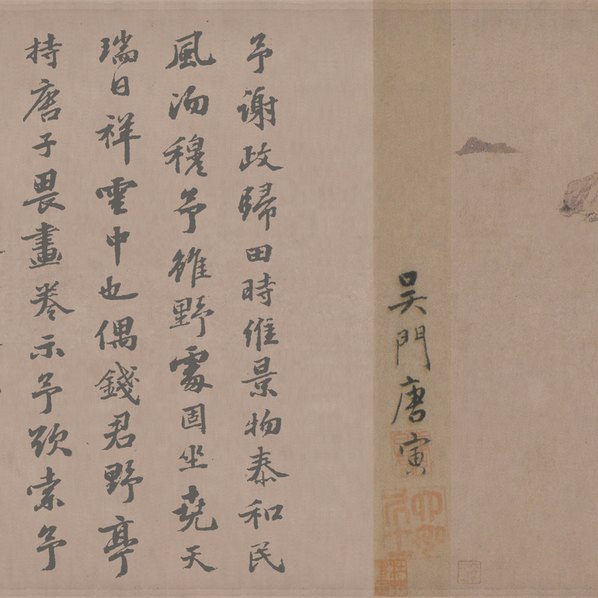 吳門唐寅
予謝政歸田時維景物泰和民
風沕穆予雖野處固坐堯天
瑞日祥雲中也偶錢君野亭
持唐子畏畫卷示予欵索予